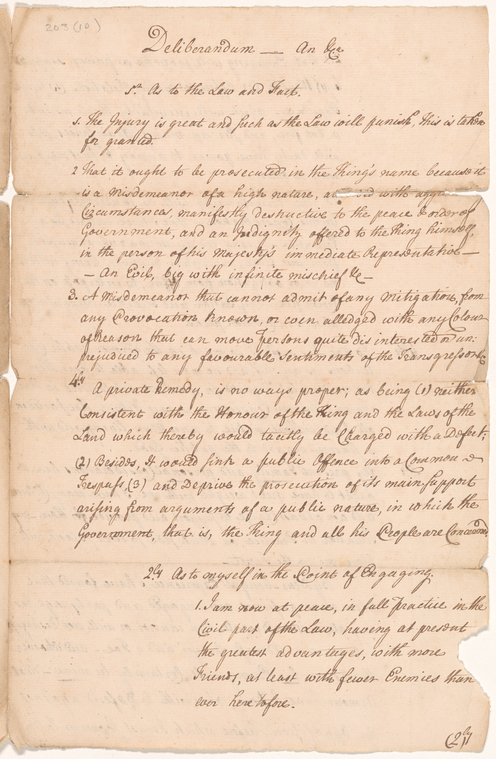 203 (10)
Deliberandum — An &ca
1st As to the Law and Fact.
1. The Injury is great and such as the Law will punish, this is taken
for granted.
2 That it ought to be prosecuted in the King's name because it
is a misdemeanor of a high nature, at with
Circumstances, manifestly destructive to the peace & order of
Government, and an Indignity offered to the King himself,
in the person of his Majesty's immediate Representative —
— An Evil, big with infinite mischief &c —
3. A Misdemeanor that cannot admit of any Mitigation, from
any Provocation known, or even alledged with any Colour
of reason that can move Persons quite disinterested or un:
prejudiced to any favourable Sentiments of the Transgressor &c
4ly A private Remedy, is no ways proper; as being (1) neither
Consistent with the Honour of the King and the Laws of the
Land which thereby would tacitly be Charged with a Defect;
(2) Besides, It would sink a public Offence into a Common
Trespass (3) and Deprive the prosecution of its main Support
arising from arguments of a public nature, in which the
Government, that is, the King and all his People are Concerned
2ly As to myself in the Point of Engaging.
1. I am now at peace, in full Practice in the
Civil part of the Law, having at present
the greatest advantages, with more
Friends, at least with fewer Enemies than
ever heretofore.
(2)ly